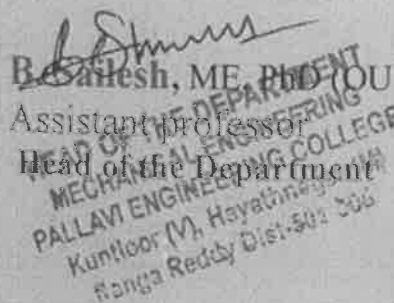 B. Sailesh, ME, PhD (OU
Assistant professor
Head of the Department
HEAD OF THE DEPARTMENT
MECHANICAL ENGINEERING
PALLAVI ENGINEERING COLLEGE
Kuntloor (V), Hayathnagar
Ranga Reddy Dist-501